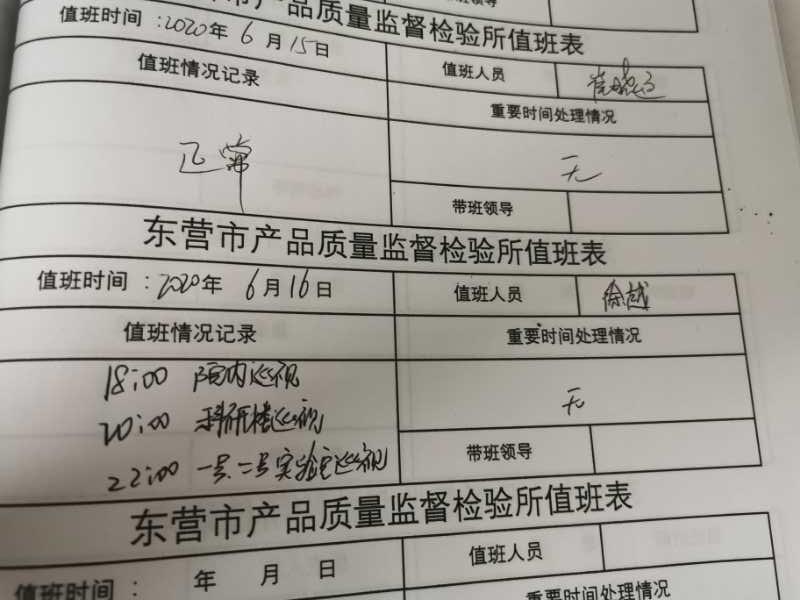 带班领导
产品质量监督检验所值班表
值班时间：2020年 6月15日
值班人员
值班情况记录
重要时间处理情况
正常
无
带班领导
东营市产品质量监督检验所值班表
值班时间：2020年 6月16日
值班人员 徐越
值班情况记录
重要时间处理情况
18:00 院内巡视
20:00 科研楼巡视
22:00 一号、二号实验室巡视
无
带班领导
东营市产品质量监督检验所值班表
值班时间： 年 月 日
值班人员
重要时间处理情况